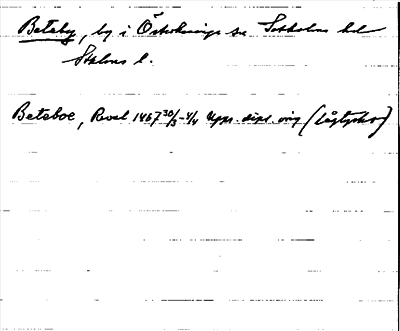 Betsby, by i Österhaninge sn. Sotholms hd
Sthlms l.
Betsboe, Reval 1467 30/3-4/4 Upps. dipl. orig (lågtyska)